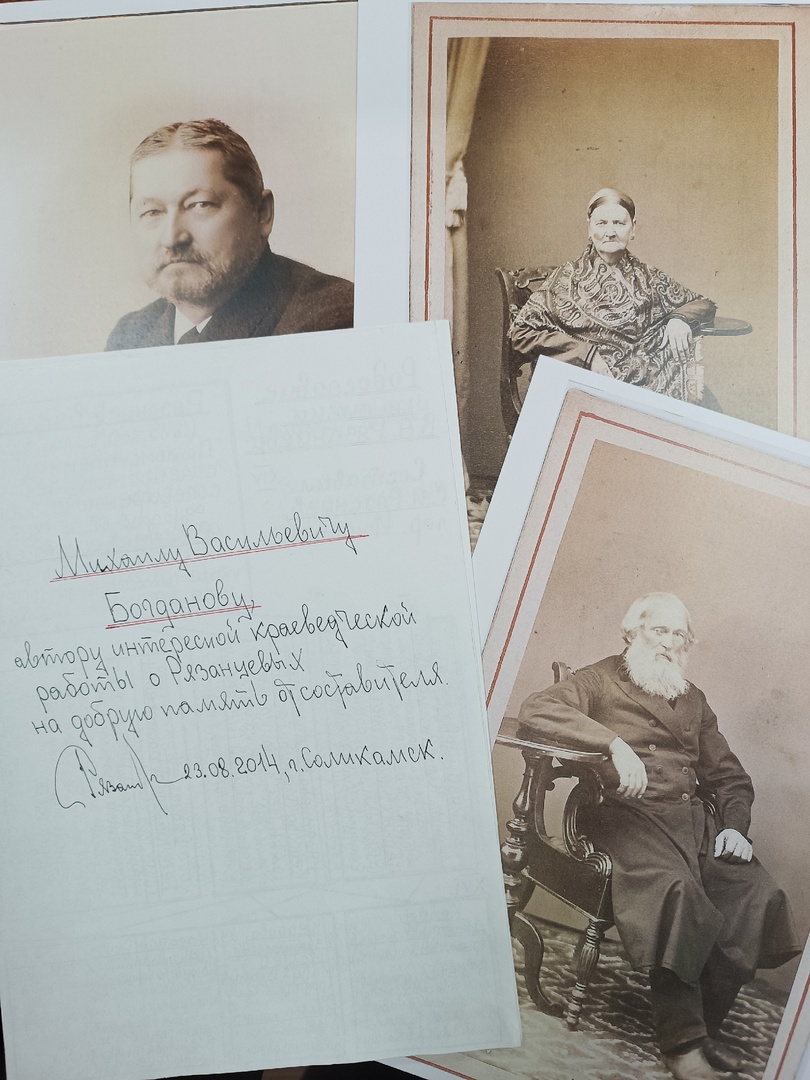 Михаилу Васильевичу
Богданову,
автору интересной краеведческой
работы о Рязанцевых
на добрую память от составителя.
23.08.2014, г. Соликамск.